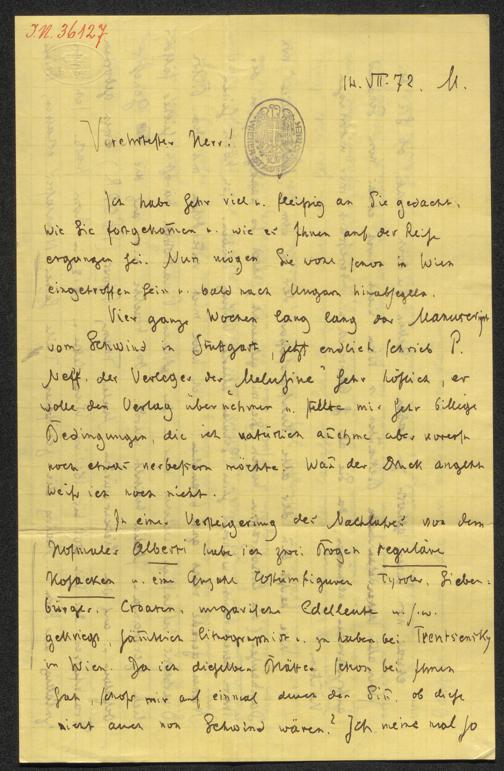 J.N. 36127
14. VII. 72. M.
Verehrtester Herr!
Ich habe sehr viel u. fleißig an Sie gedacht,
wie Sie fortgekom̄en u. wie es Ihnen auf der Reise
ergangen sei. Nun mögen Sie wohl schon in Wien
eingetroffen sein u. bald nach Ungarn hinabsegeln.
Vier ganze Wochen lang lang das Manuscript
vom Schwind in Stuttgart, jetzt endlich schrieb P.
Neff, der Verleger der „Melusine" sehr höflich, er
wolle den Verlag übernehmen u. stellte mir sehr billige
Bedingungen, die ich natürlich an̄ehme aber vorerst
noch etwas verbessern möchte. Wan̄ der Druck angeht
weiß ich noch nicht.
In einer Versteigerung des Nachlaßes von dem
Hofmaler Alberti habe ich zwei Bogen reguläre
Kosacken u. eine Anzahl Costümfiguren Tyroler, Sieben-
bürger, Croaten, ungarische Edelleute u.s.w.
gekriegt, säm̄tlich lithographirt u. zu haben bei Trentsensky
in Wien. Da ich dieselben Blätter schon bei Ihnen
sah, schoß mir auf einmal durch den Sin̄, ob diese
nicht auch von Schwind wären? Ich meine mal so